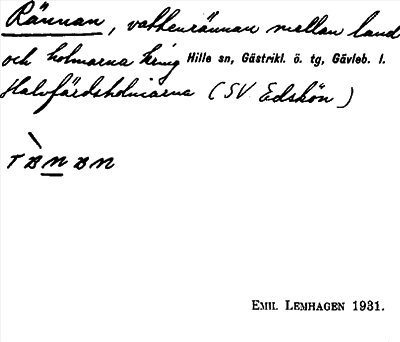 Rännan, vattenrännan mellan land
och holmarna kring Hille sn, Gästrikl. ö. tg, Gävleb. l.
Halvfärdsholmarna (SV Edskön)
EMIL LEMHAGEN 1931.